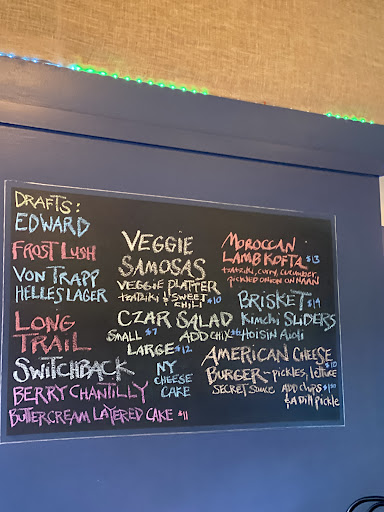 DRAFTS:
EDWARD
FROST LUSH
VON TRAPP
HELLES LAGER
LONG
TRAIL
SWITCHBACK
BERRY CHANTILLY
BUTTERCREAM LAYERED CAKE $11
VEGGIE
SAMOSAS
VEGGIE PLATTER
TZADIKI & SWEET $10
CHILI
CZAR SALAD
SMALL $7 ADD CHIX $6
LARGE $12
NY
CHEESE
CAKE
MOROCCAN
LAMB KOFTA $13
tzatziki, curry, cucumber,
PICKLED ONION ON NAAN
BRISKET $14
KIMCHI SLIDERS
HOISIN AIOLI
AMERICAN CHEESE $10
BURGER - PICKLES, LETTUCE
SECRET SAUCE ADD CHIPS
& A DILL PICKLE